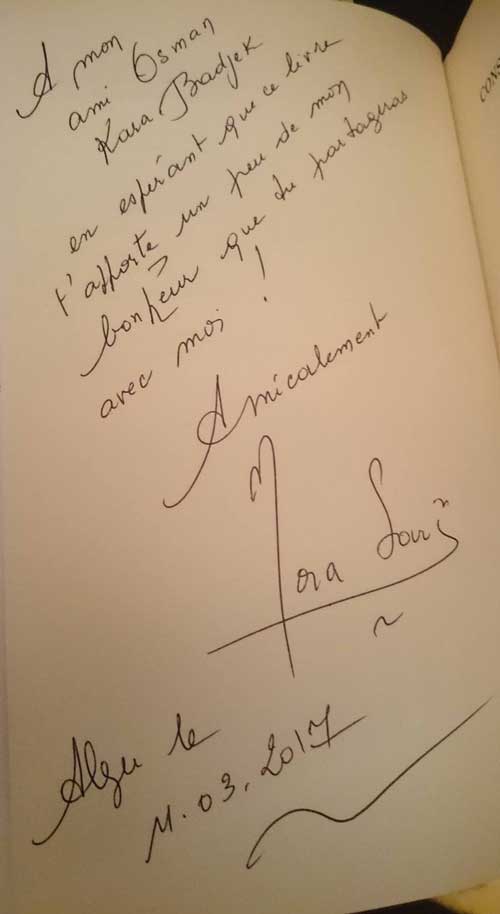 A mon
ami Osman
Kara Bradjek
en espérant que ce livre
t'apporte un peu de mon
bonheur que tu partageras
avec moi !
Amicalement
Nora Sari
Alger le
11.03.2017
CONS